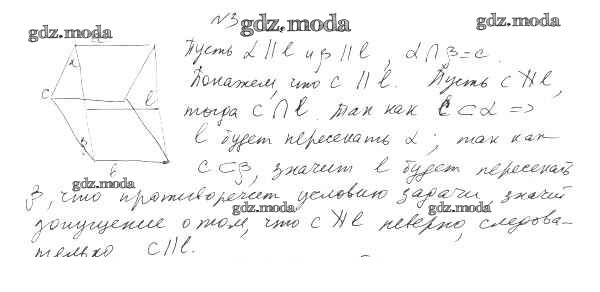 №3
gdz.moda
gdz.moda
gdz.moda
Пусть α || l и β || l, α ∩ β = c.
Покажем, что c || l. Пусть c ∦ l,
тогда c ∩ l. Так как c ⊂ α =>
l будет пересекать α; так как
c ⊂ β, значит l будет пересекать
β, что противоречит условию задачи, значит
допущение о том, что c ∦ l неверно, следова-
тельно c || l.
α
c
l
β
gdz.moda
gdz.moda
gdz.moda